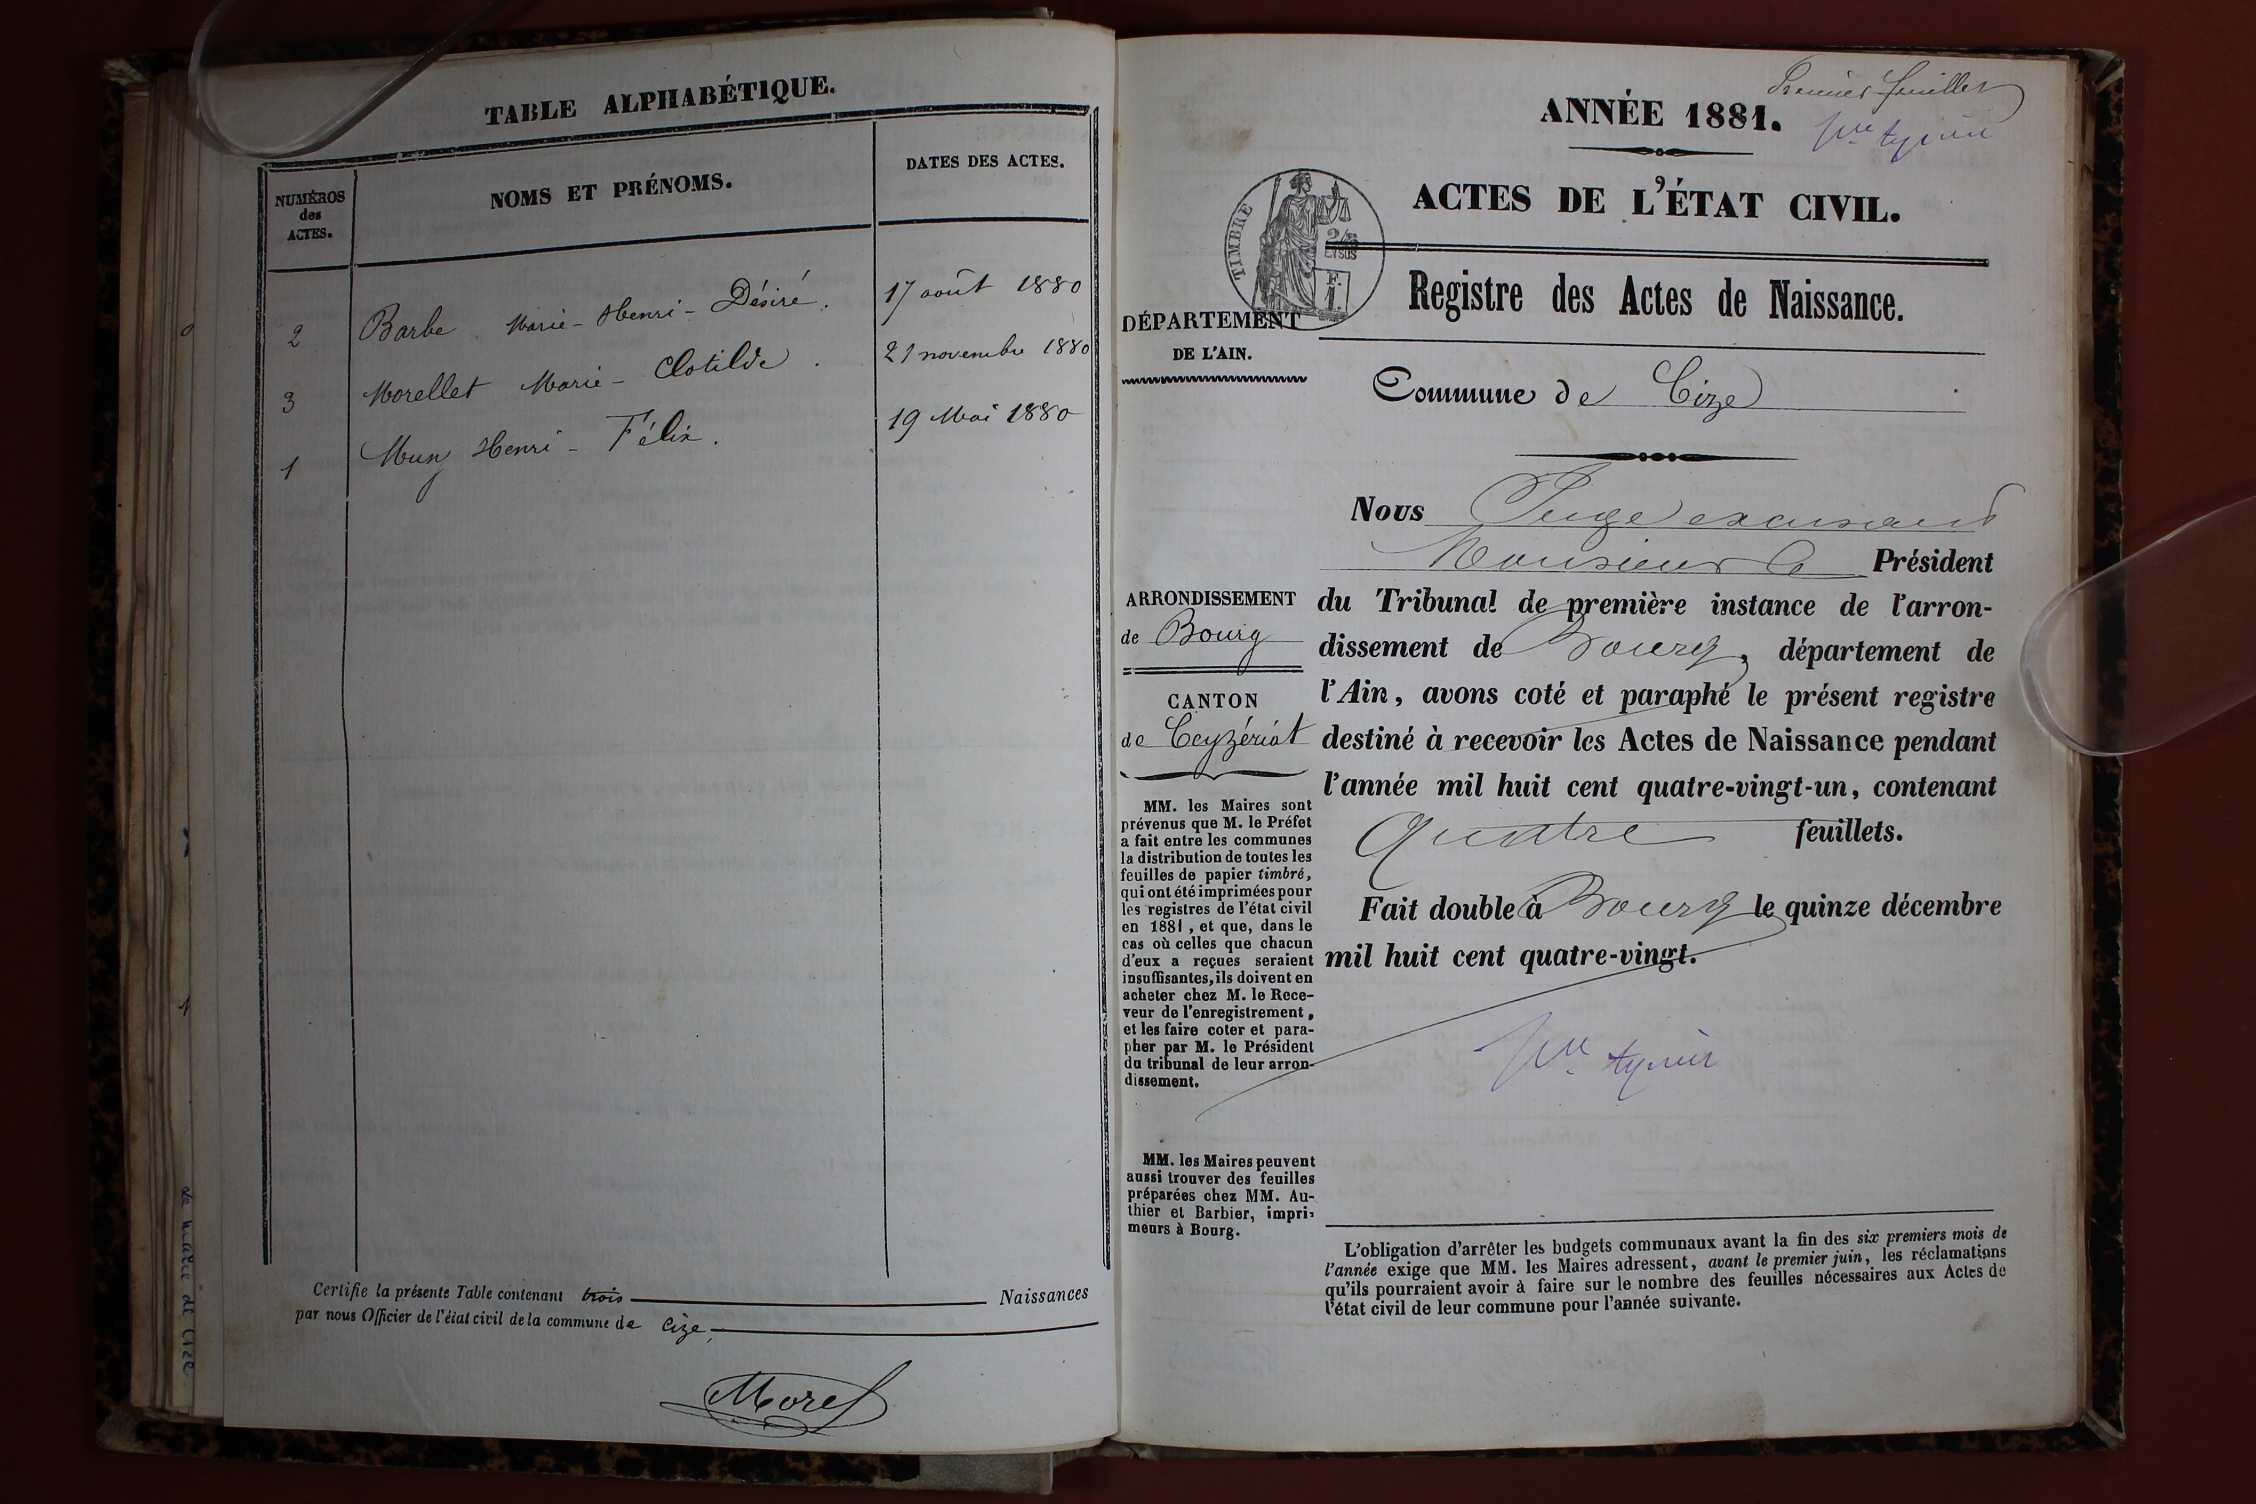 TABLE ALPHABÉTIQUE.
NUMÉROS
des
ACTES.
NOMS ET PRÉNOMS.
DATES DES ACTES.
2 Barbe Marie-Henri-Désiré. 17 août 1880
3 Morellet Marie-Clotilde. 21 novembre 1880
1 Henri-Félix. 19 Mai 1880
Certifie la présente Table contenant trois Naissances
par nous Officier de l'état civil de la commune de Cize,
Morel
Premier feuillet
ANNÉE 1881.
ACTES DE L'ÉTAT CIVIL.
TIMBRE
2/10
EN SUS
F.
1.
Registre des Actes de Naissance.
DÉPARTEMENT
DE L'AIN.
Commune de Cize
ARRONDISSEMENT
de Bourg
CANTON
de Ceyzériat
MM. les Maires sont
prévenus que M. le Préfet
a fait entre les communes
la distribution de toutes les
feuilles de papier timbré,
qui ont été imprimées pour
les registres de l'état civil
en 1881, et que, dans le
cas où celles que chacun
d'eux a reçues seraient
insuffisantes, ils doivent en
acheter chez M. le Rece-
veur de l'enregistrement,
et les faire coter et para-
pher par M. le Président
du tribunal de leur arron-
dissement.
MM. les Maires peuvent
aussi trouver des feuilles
préparées chez MM. Au-
thier et Barbier, impri-
meurs à Bourg.
Nous Juge excusant
Monsieur le Président
du Tribunal de première instance de l'arron-
dissement de Bourg, département de
l'Ain, avons coté et paraphé le présent registre
destiné à recevoir les Actes de Naissance pendant
l'année mil huit cent quatre-vingt-un, contenant
Quatre feuillets.
Fait double à Bourg le quinze décembre
mil huit cent quatre-vingt.
L'obligation d'arrêter les budgets communaux avant la fin des six premiers mois de
l'année exige que MM. les Maires adressent, avant le premier juin, les réclamations
qu'ils pourraient avoir à faire sur le nombre des feuilles nécessaires aux Actes de
l'état civil de leur commune pour l'année suivante.